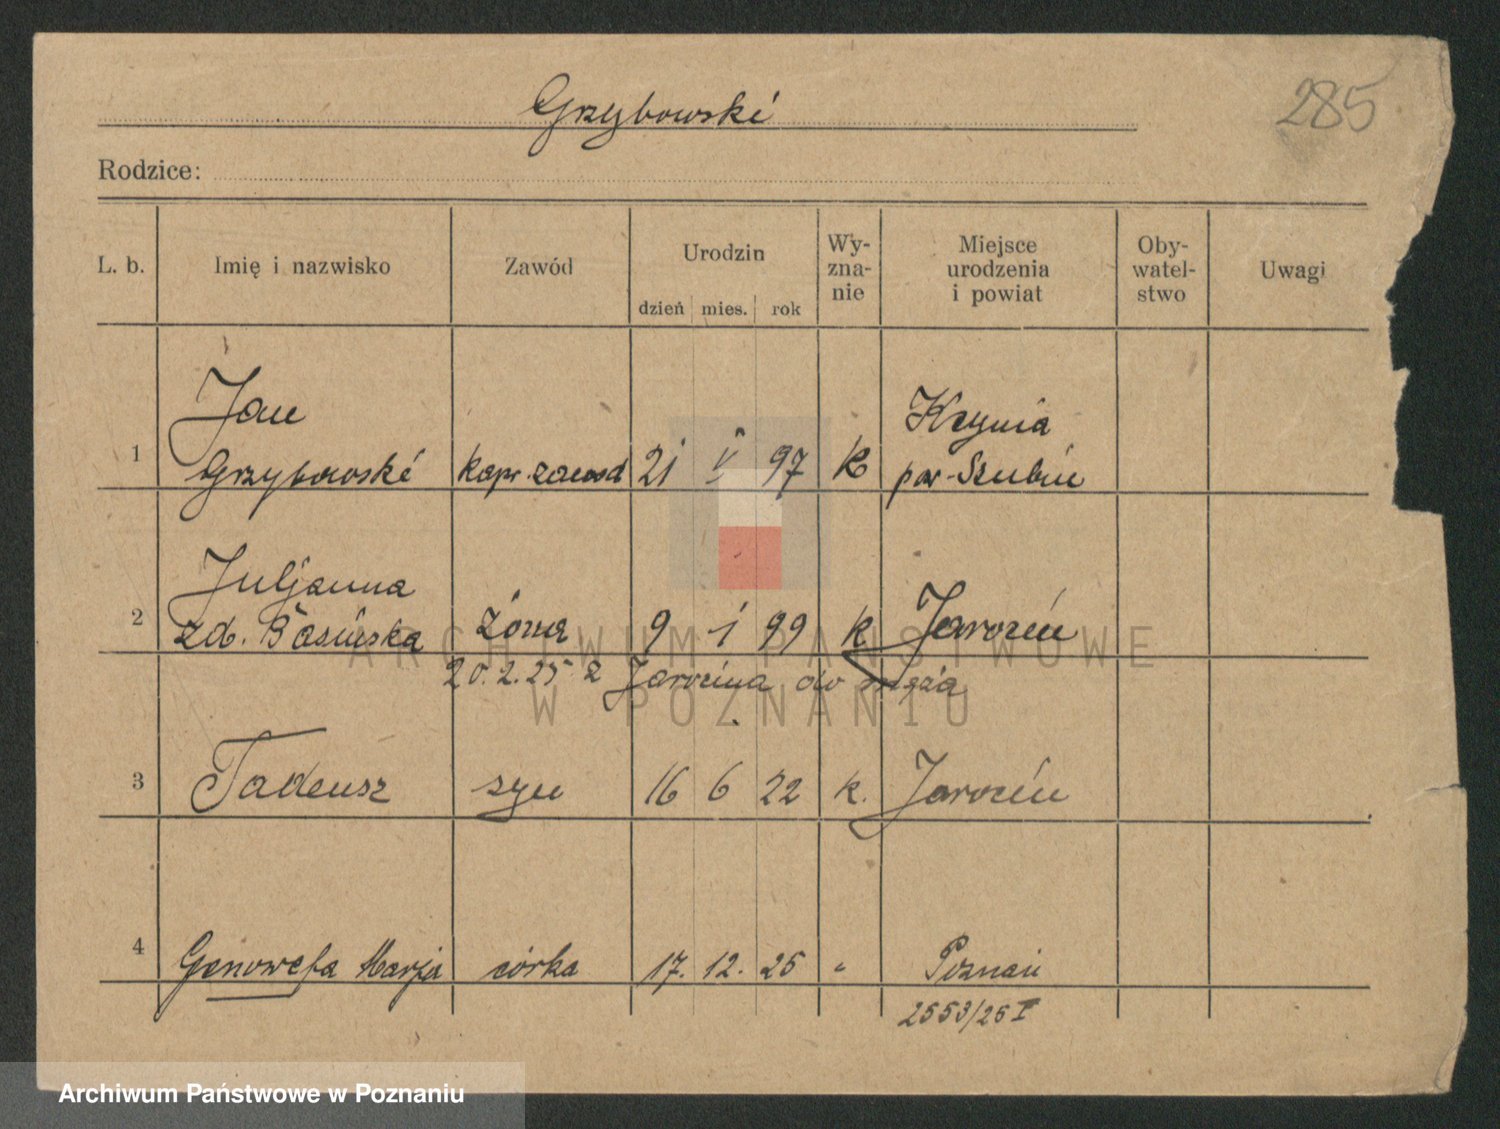 Grzybowski
285
Rodzice:
L. b. Imię i nazwisko Zawód Urodzin dzień mies. rok Wy-zna-nie Miejsce urodzenia i powiat Oby-watel-stwo Uwagi
Jan Kcynia
1 Grzybowski kapr. zawod 21 V 97 k pow. Szubin
Juljanna
2 zd. Basińska żona 9 1 99 k Jarocin
20.2.25 z Jarocina do męża
3 Tadeusz syn 16 6 22 k. Jarocin
4 Genowefa Marja córka 17. 12. 25 " Poznań
2553/25 I
ARCHIWUM PAŃSTWOWE
W POZNANIU
Archiwum Państwowe w Poznaniu